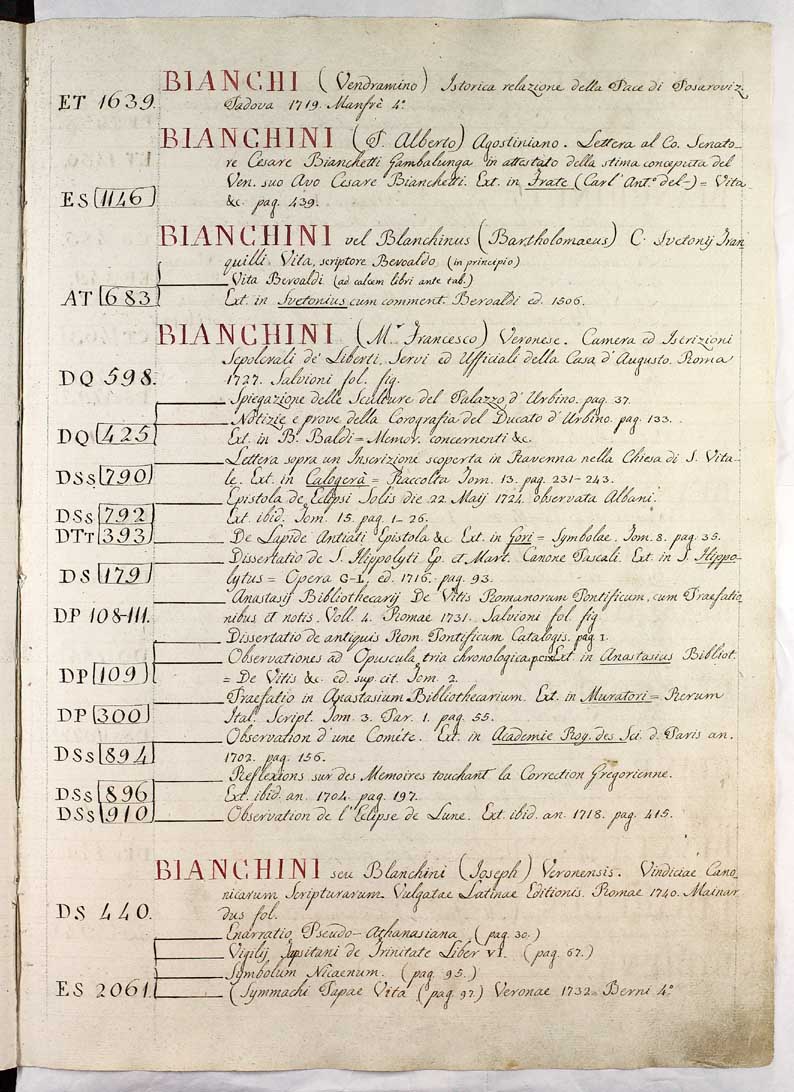 BIANCHI (Vendramino) Istorica relazione della Pace di Posaroviz.
ET 1639. Padova 1719. Manfrè 4.°
BIANCHINI (P. Alberto) Agostiniano. Lettera al Co. Senato-
re Cesare Bianchetti Gambalunga in attestato della stima conceputa del
Ven. suo Avo Cesare Bianchetti. Ext. in Frate (Carl' Ant.° del-) = Vita
ES 1146 &c. pag. 439.
BIANCHINI vel Blanchinus (Bartholomaeus) C. Svetonij Tran
quilli Vita, scriptore Beroaldo (in principio)
Vita Beroaldi (ad calcem libri ante tab.)
AT 683 Ext. in Svetonius cum comment. Beroaldi ed. 1506.
BIANCHINI (M.r Francesco) Veronese. Camera ed Iscrizioni
Sepolcrali de' Liberti, Servi ed Ufficiali della Casa d'Augusto. Roma
DQ 598. 1727. Salvioni fol. fig.
Spiegazione delle Sculture del Palazzo d'Urbino. pag. 37.
Notizie e prove della Corografia del Ducato d'Urbino. pag. 133.
DQ 425 Ext. in B. Baldi = Memor. concernenti &c.
Lettera sopra un Inscrizione scoperta in Ravenna nella Chiesa di S. Vita-
DSs 790 le. Ext. in Calogerà = Raccolta Tom. 13. pag. 231-243.
Epistola de Eclipsi Solis die 22 Maij 1724. observata Albani.
DSs 792 Ext. ibid. Tom. 15. pag. 1-26.
DTt 393 De Lapide Antiati Epistola &c Ext. in Gori = Symbolae. Tom. 8. pag. 35.
Dissertatio de S. Hippolyti Ep. et Mart. Canone Pascali. Ext. in S. Hippo-
DS 179 lytus = Opera G-L, ed. 1716. pag. 93.
Anastasij Bibliothecarij De Vitis Romanorum Pontificum, cum Praefatio
DP 108-111. nibus et notis. Voll. 4. Romae 1731. Salvioni fol. fig
Dissertatio de antiquis Rom. Pontificum Catalogis. pag. 1.
Observationes ad Opuscula tria chronologica Ext. in Anastasius Bibliot.
DP 109 = De Vitis &c. ed. sup. cit. Tom. 2.
Praefatio in Anastasium Bibliothecarium. Ext. in Muratori = Rerum
DP 300 Ital. Script. Tom. 3. Par. 1. pag. 55.
Observation d'une Cométe. Ext. in Academie Roy. des Sci. d. Paris an.
DSs 894 1702. pag. 156.
Reflexions sur des Memoires touchant la Correction Gregorienne.
DSs 896 Ext. ibid. an. 1704. pag. 197.
DSs 910 Observation de l'Eclipse de Lune. Ext. ibid. an. 1718. pag. 415.
BIANCHINI seu Blanchini (Joseph) Veronensis. Vindiciae Cano-
nicarum Scripturarum Vulgatae Latinae Editionis. Romae 1740. Mainar-
DS 440. dus fol.
Enarratio Pseudo-Athanasiana (pag. 30.)
Vigilij Tapsitani de Trinitate Liber VI. (pag. 67.)
Symbolum Nicaenum. (pag. 95.)
ES 2061. (Symmachi Papae Vita (pag. 97.) Veronae 1732. Berni 4.°